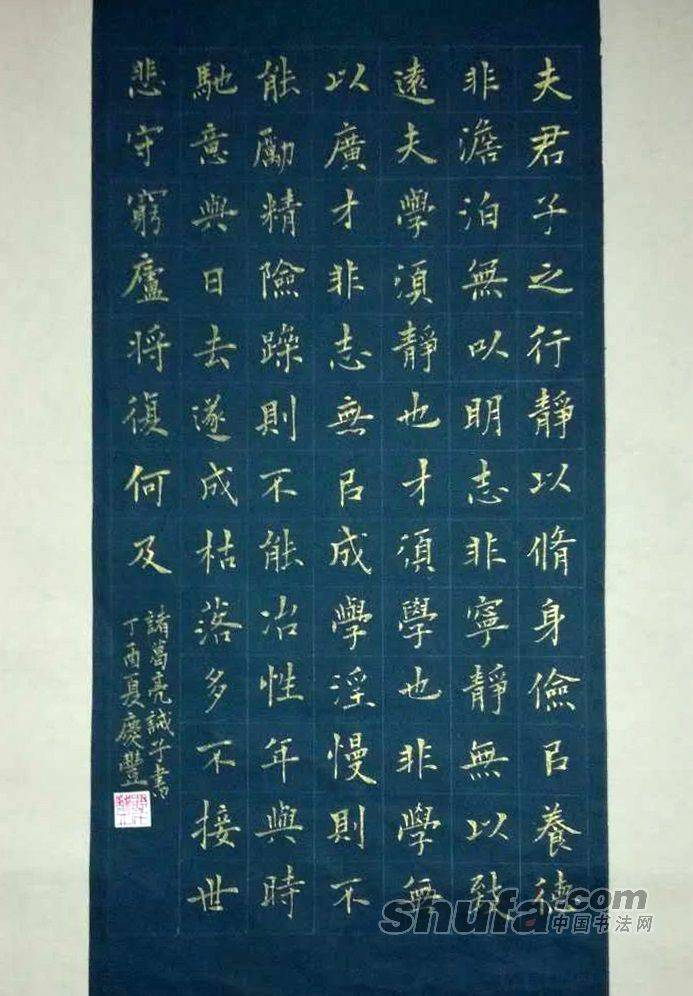 夫君子之行靜以脩身儉㠯養德
非澹泊無以明志非寧靜無以致
遠夫學須靜也才須學也非學無
以廣才非志無㠯成學淫慢則不
能勵精險躁則不能冶性年與時
馳意與日去遂成枯落多不接世
悲守窮廬將復何及
諸葛亮誡子書
丁酉夏慶豐
shufa.com
中国书法网